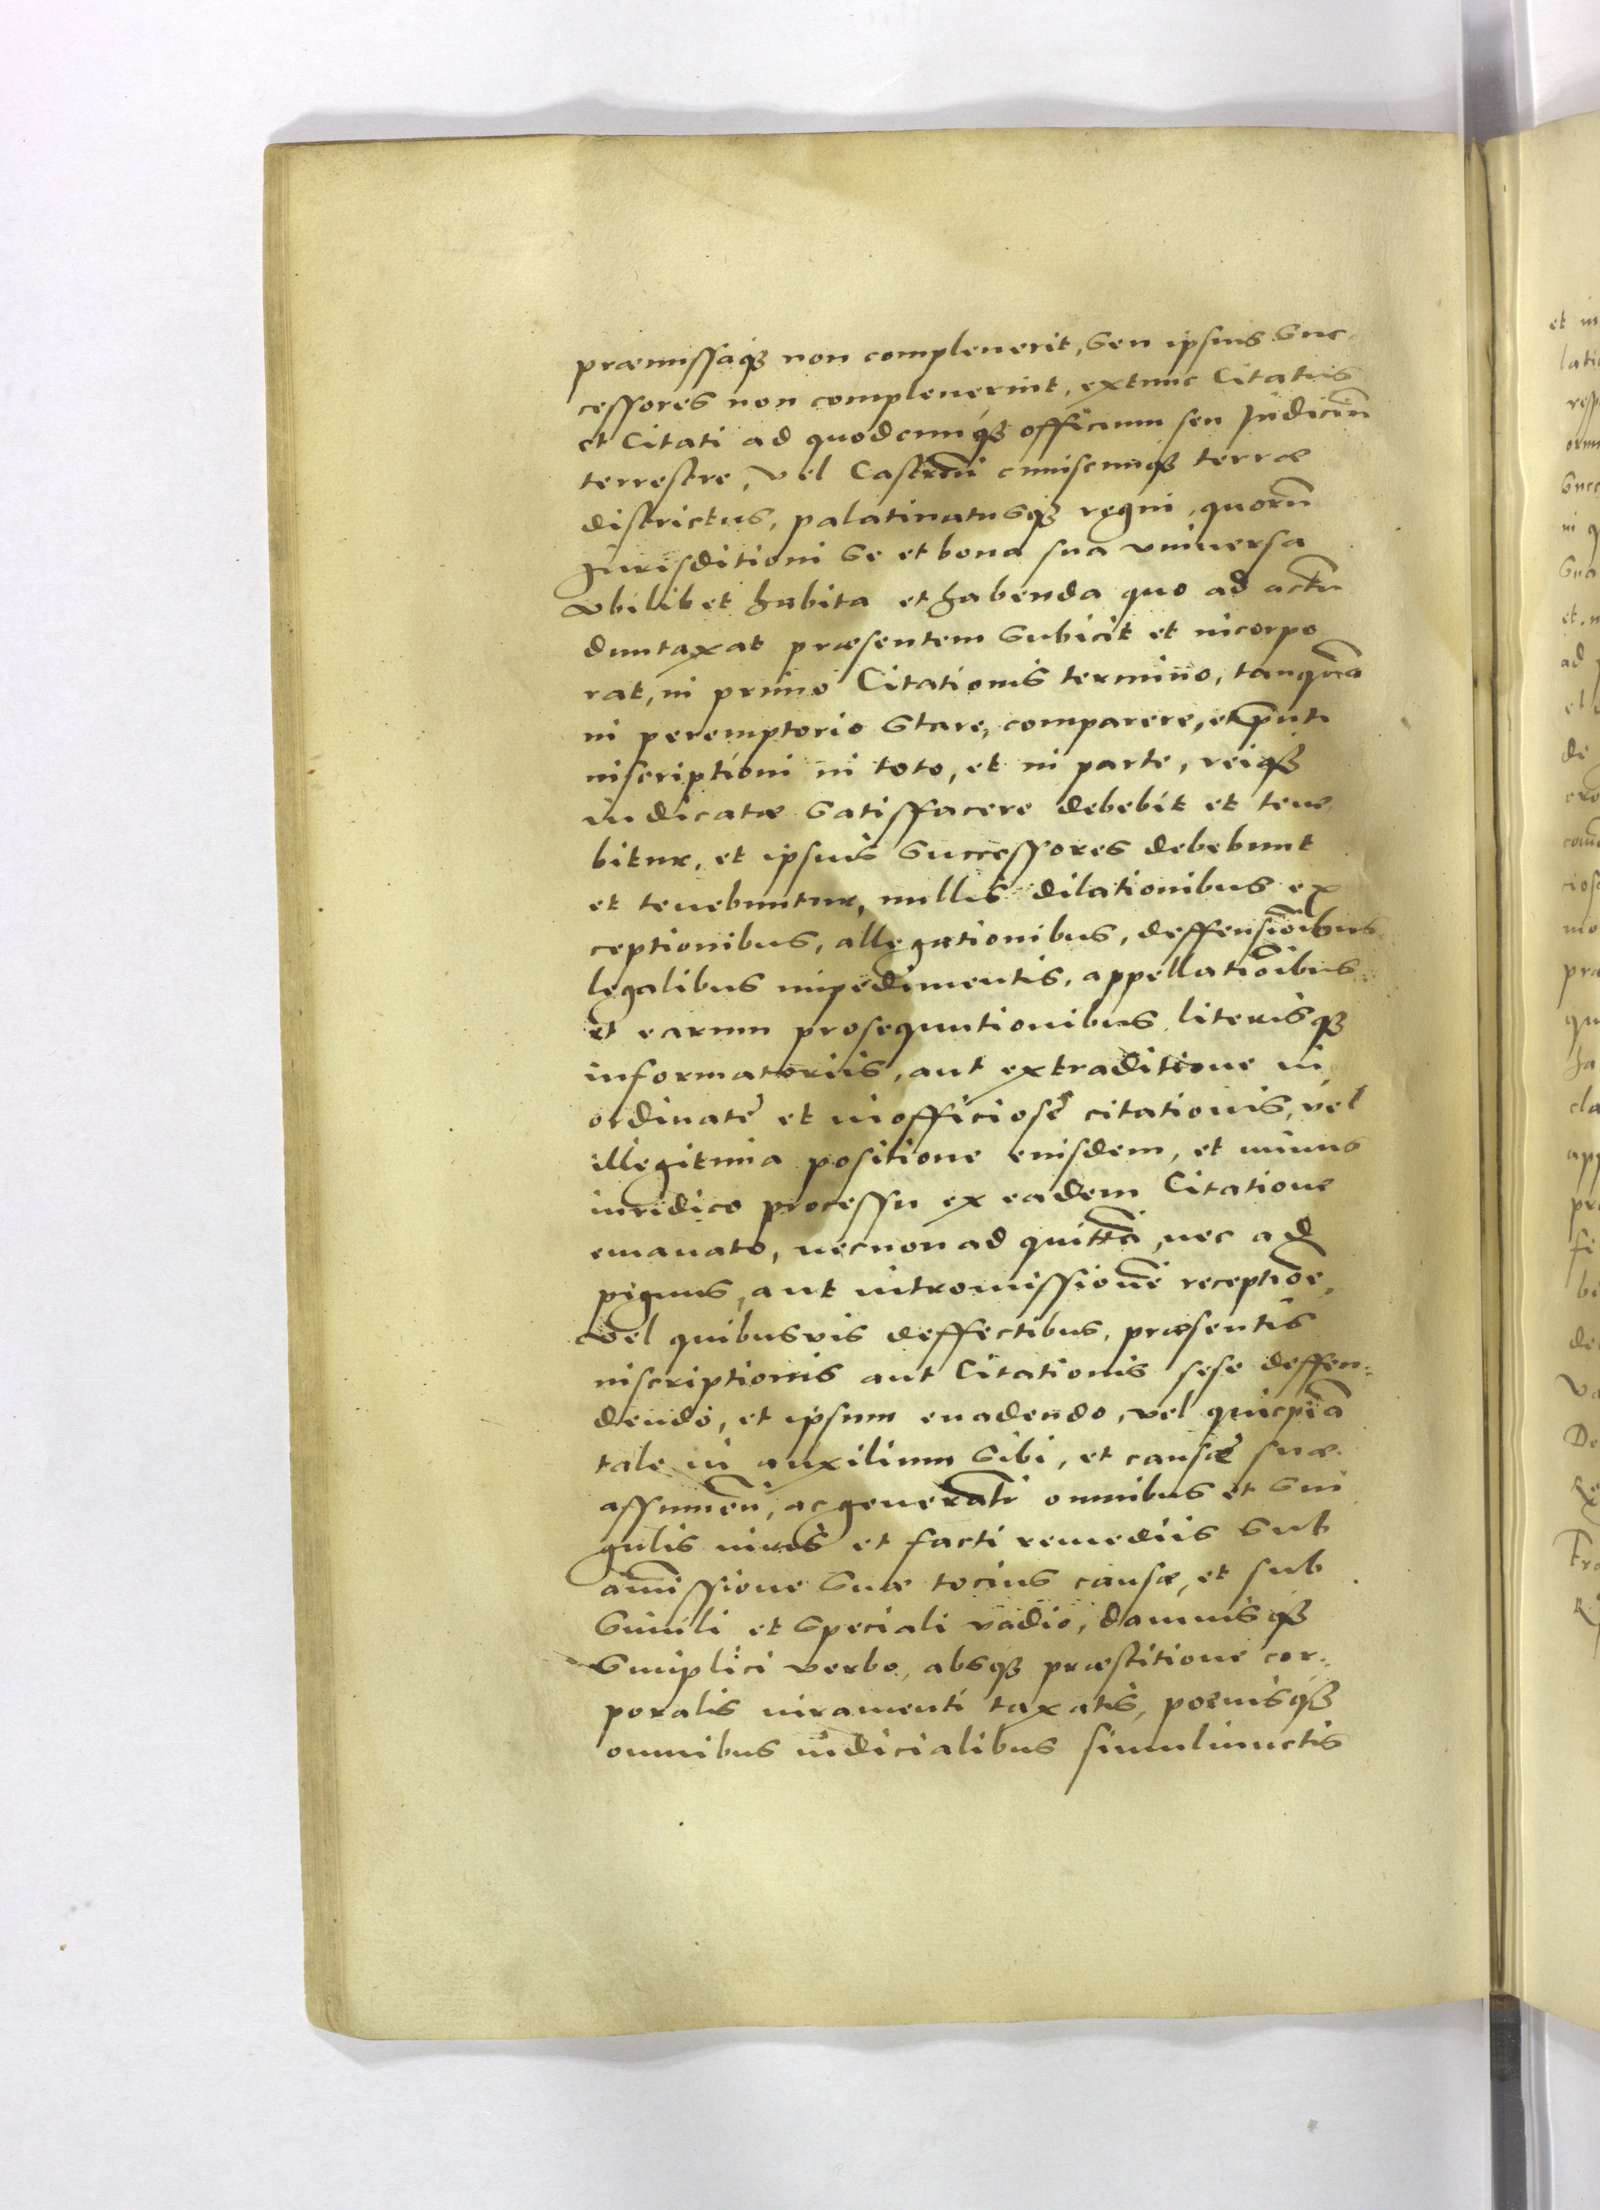 præmissaq₃ non compleuerit, seu ipsius suc-
cessores non compleuerint, extunc Citatus
et Citati ad quodcunq₃ officium seu Judiciū
terrestre, vel Castreñ cuiuscunq₃ terræ
districtus, palatinatusq₃ regni, quorū
Jurisditioni se et bona sua vniuersa
vbilibet habita et habenda quo ad actū
duntaxat præsentem subicit et incorpo
rat, in primo Citationis termino, tanquā
in peremptorio stare, comparere, et pñti
inscriptioni in toto, et in parte, reiq₃
iudicatæ satisffacere debebit et tene
bitur, et ipsius successores debebunt
et tenebuntur, nullis dilationibus ex
ceptionibus, allegationibus, deffensiōibus
legalibus impedimentis, appellatiōibus
et earum prosequutionibus literisq₃
informatoriis, aut extraditione in
ordinatè et inofficiosè citationis, vel
illegitima positione eiusdem, et minus
iuridico processu ex eadem Citatione
emanato, necnon ad quittā, nec ad
pignus, aut intromissionē receptiōe,
vel quibusvis deffectibus, præsentis
inscriptionis aut Citationis sese deffen-
dendo, et ipsum euadendo, vel quicpiā
tale in auxilium sibi, et causæ suæ
assumeñ, ac generāti omnibus et sin
gulis iuris et facti remediis sub
amīssione suæ tocius causæ, et sub
simili et speciali vadio, damnisq₃
simplici verbo, absq₃ præstitione cor-
poralis iuramenti taxatis, poenisq₃
omnibus iudicialibus simuliunctis